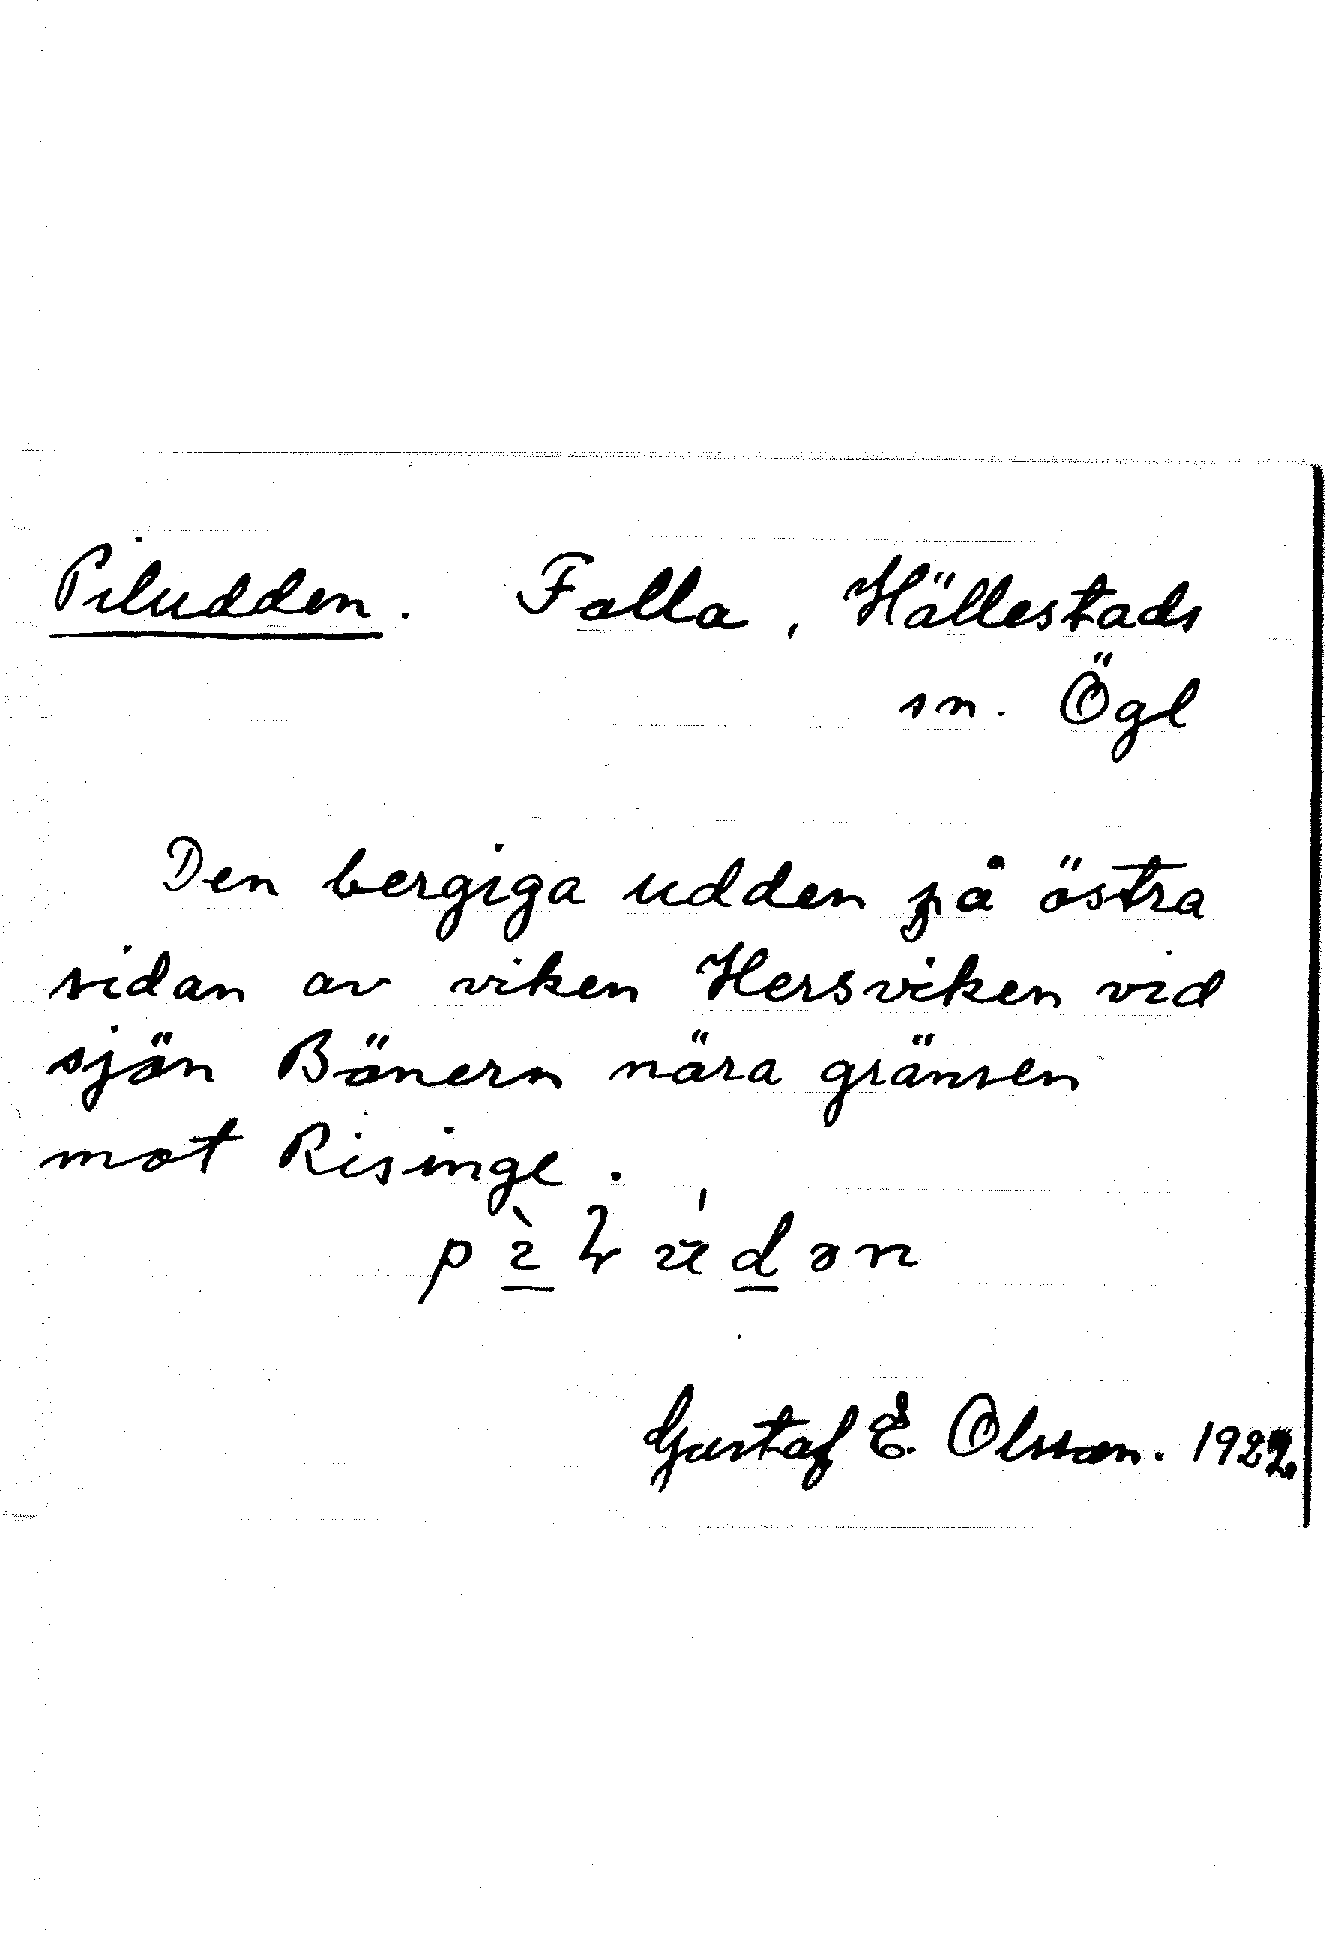 Piludden. Falla, Hällestads
sn. Ögl
Den bergiga udden på östra
sidan av viken Hersviken vid
sjön Bönern nära gränsen
mot Risinge.
Gustaf E. Olsson. 1922.